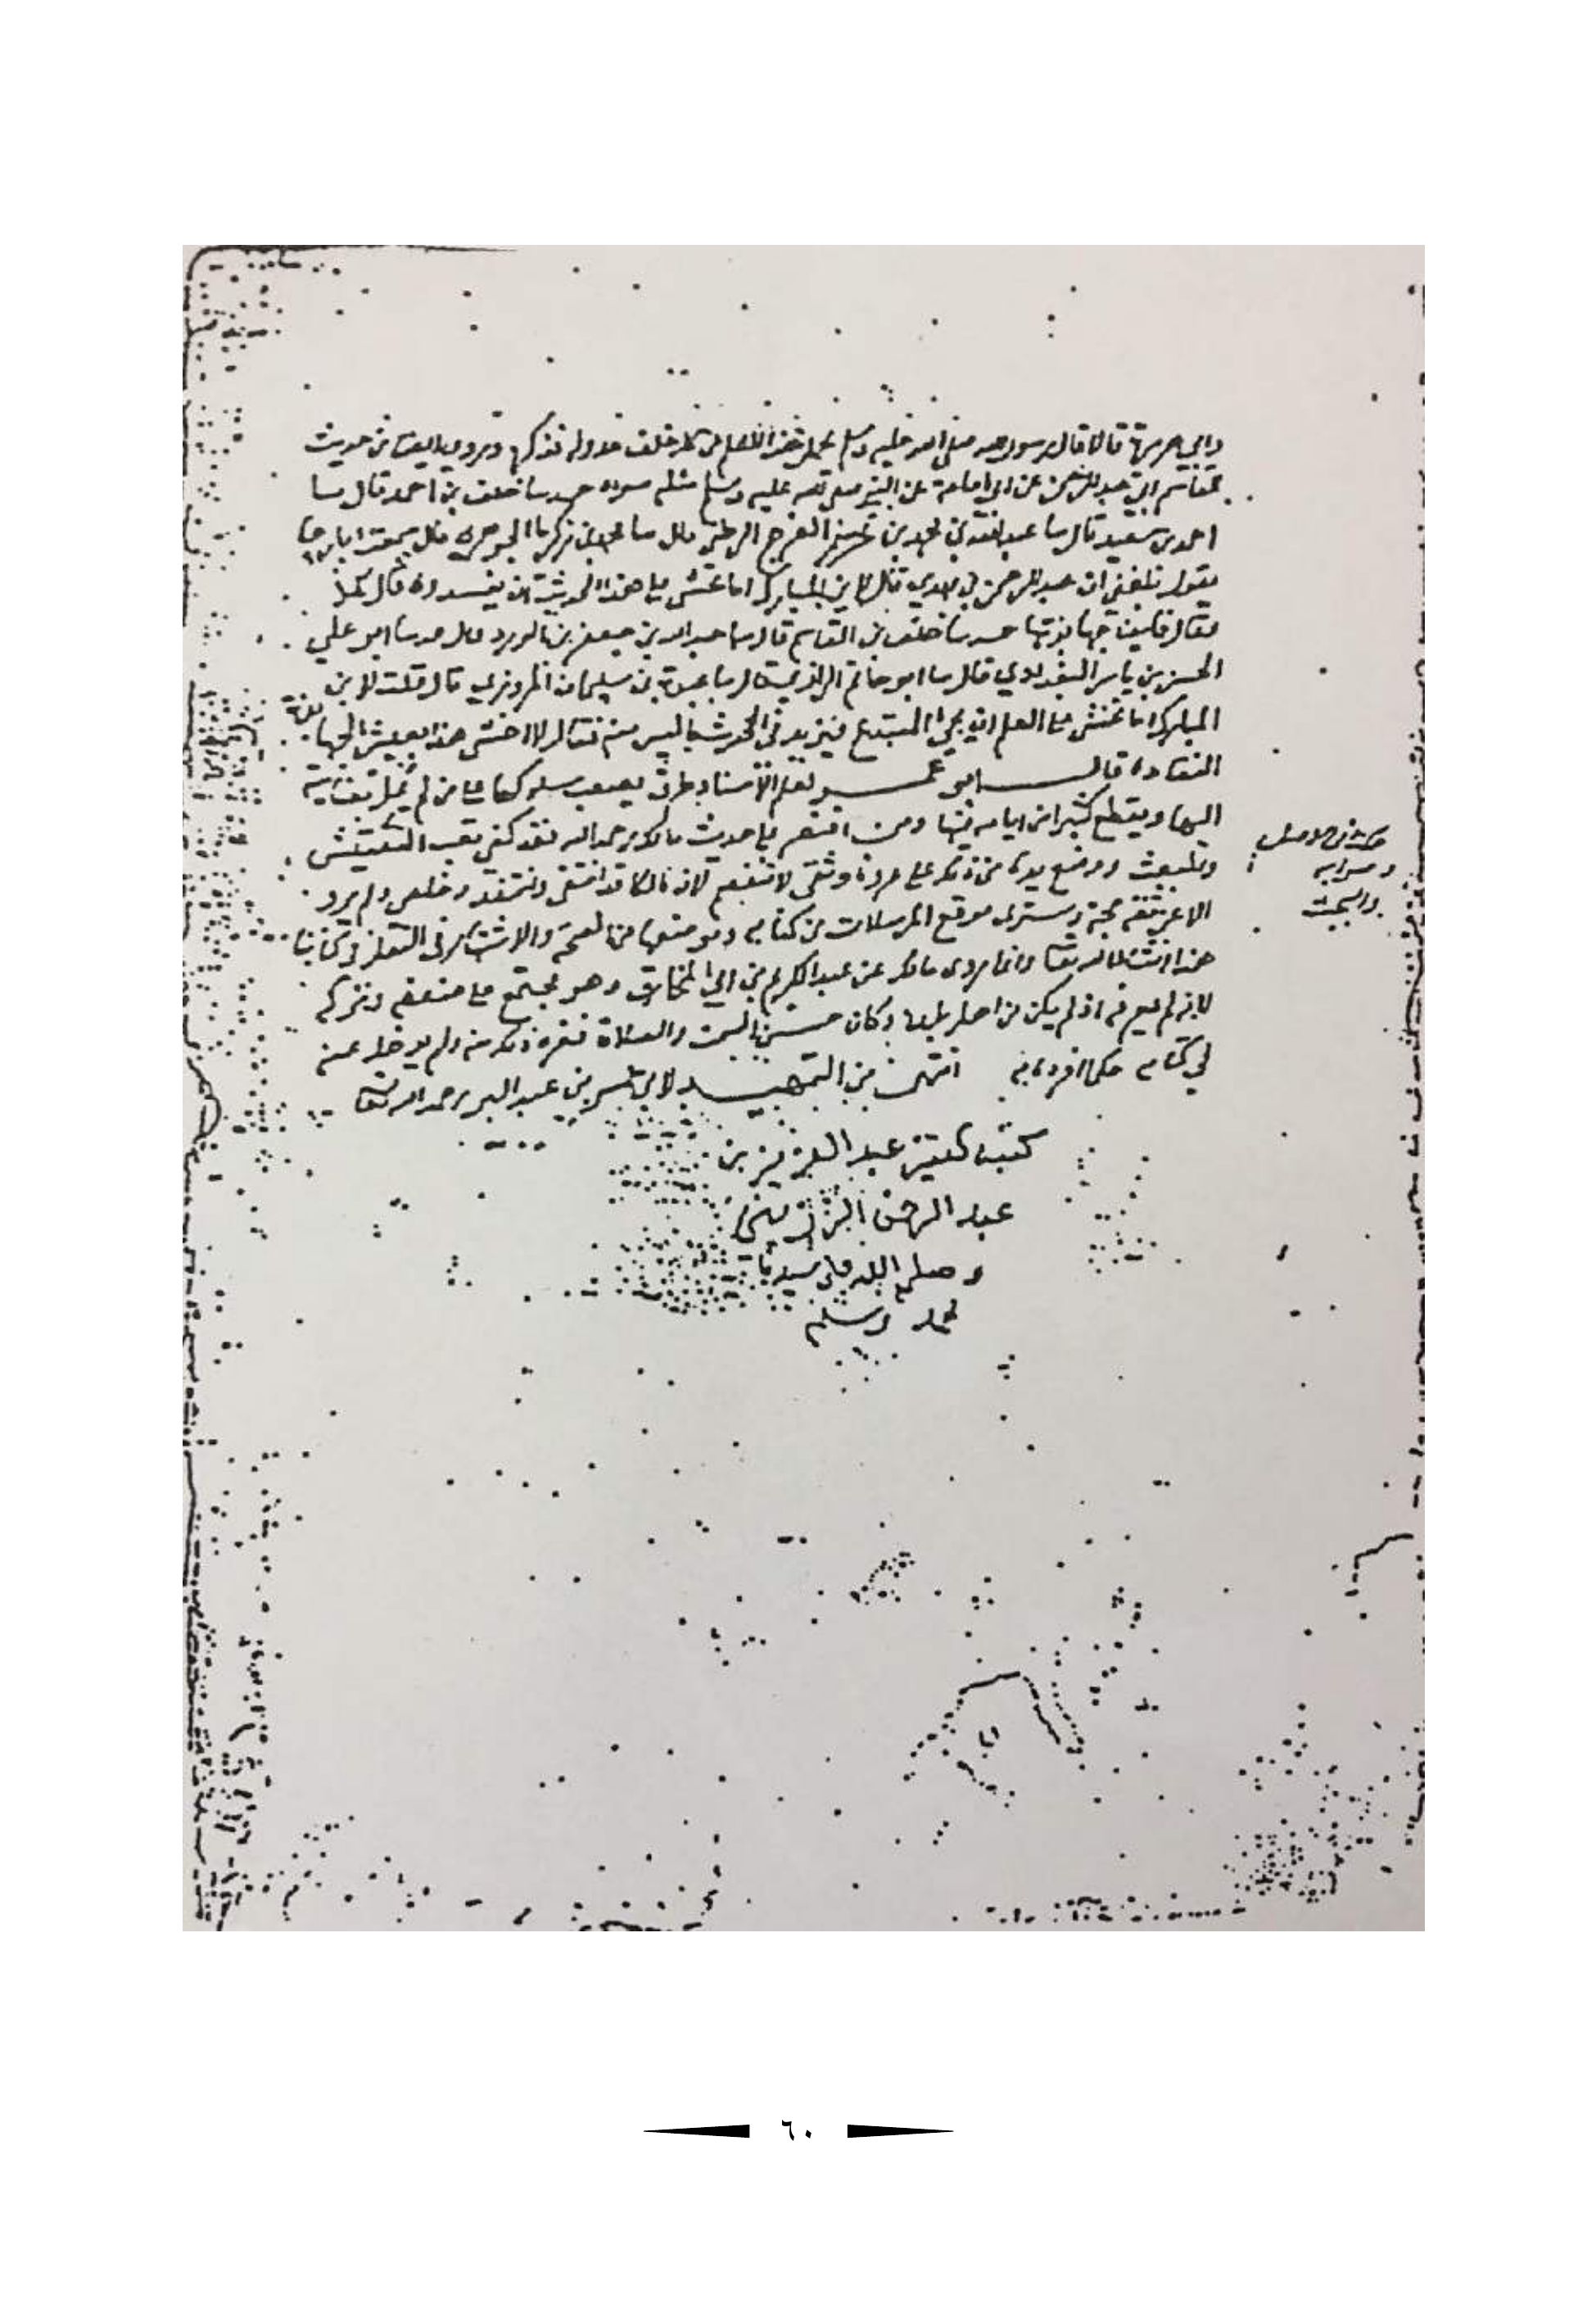 وابي هريرة قالا قال رسول الله صلى الله عليه وسلم يحمل هذا العلم من كل خلف عدوله فذكره وقد روي ايضا من حديث
القاسم ابي عبد الرحمن عن ابي امامة عن النبي صلى الله عليه وسلم مثله سواء حدثنا خلف بن احمد قال حدثنا
احمد بن سعيد قال حدثنا عبد الله بن محمد بن الفرج قال حدثنا محمد بن زكريا الجوهري قال سمعت ابا رجا
يقول بلغني ان عبد الرحمن بن مهدي قال لابن المبارك اما تخشى على هذا الحديث ان يفسدوه قال كلا
فقال فاين جهابذتها حدثنا خلف بن القاسم قال حدثنا عبد الله بن جعفر بن الورد قال حدثنا ابو علي
الحسن بن ياسر البغدادي قال حدثنا ابو حاتم الرازي قال حدثنا عبدة بن سليمان المروزي قال قلت لابن
المبارك اما تخشى على العلم ان يجي المبتدع فيزيد في الحديث ما ليس منه فقال لا اخشى هذا بعيش الجهابذة
النقاد قال ابو عمر لعلم الاسناد طرق يصعب سلوكها على من لم يصل بعنايته
اليها ويقطع كثيرا من ايامه فيها ومن اقتصر على حديث مالك رحمه الله فقد كفي تعب التفتيش
والبحث ووضع يده من ذلك على عروة وثقى لا تنفصم لان مالكا قد انتقى وانتقد وخلص ولم يرو
الا عن ثقة حجة وسترى موقع المرسلات من كتابه وموضعها من الصحة والاشتهار في النقل في كتابنا
هذا ان شاء الله تعا وانما روى مالك عن عبد الكريم بن ابي المخارق وهو مجتمع على ضعفه وتركه
لانه لم يعرفه اذ لم يكن من اهل بلده وكان حسن السمت والصلاة فغره ذلك منه ولم يدخل عنه
في كتابه حكما افرده به انتهى من التمهيد لابي عمر بن عبد البر رحمه الله تعا
هكذا في الاصل
وصوابه
والبحث
كتبه الفقير عبد العزيز بن
عبد الرحمن
وصلى الله على سيدنا
محمد وسلم
٦٠